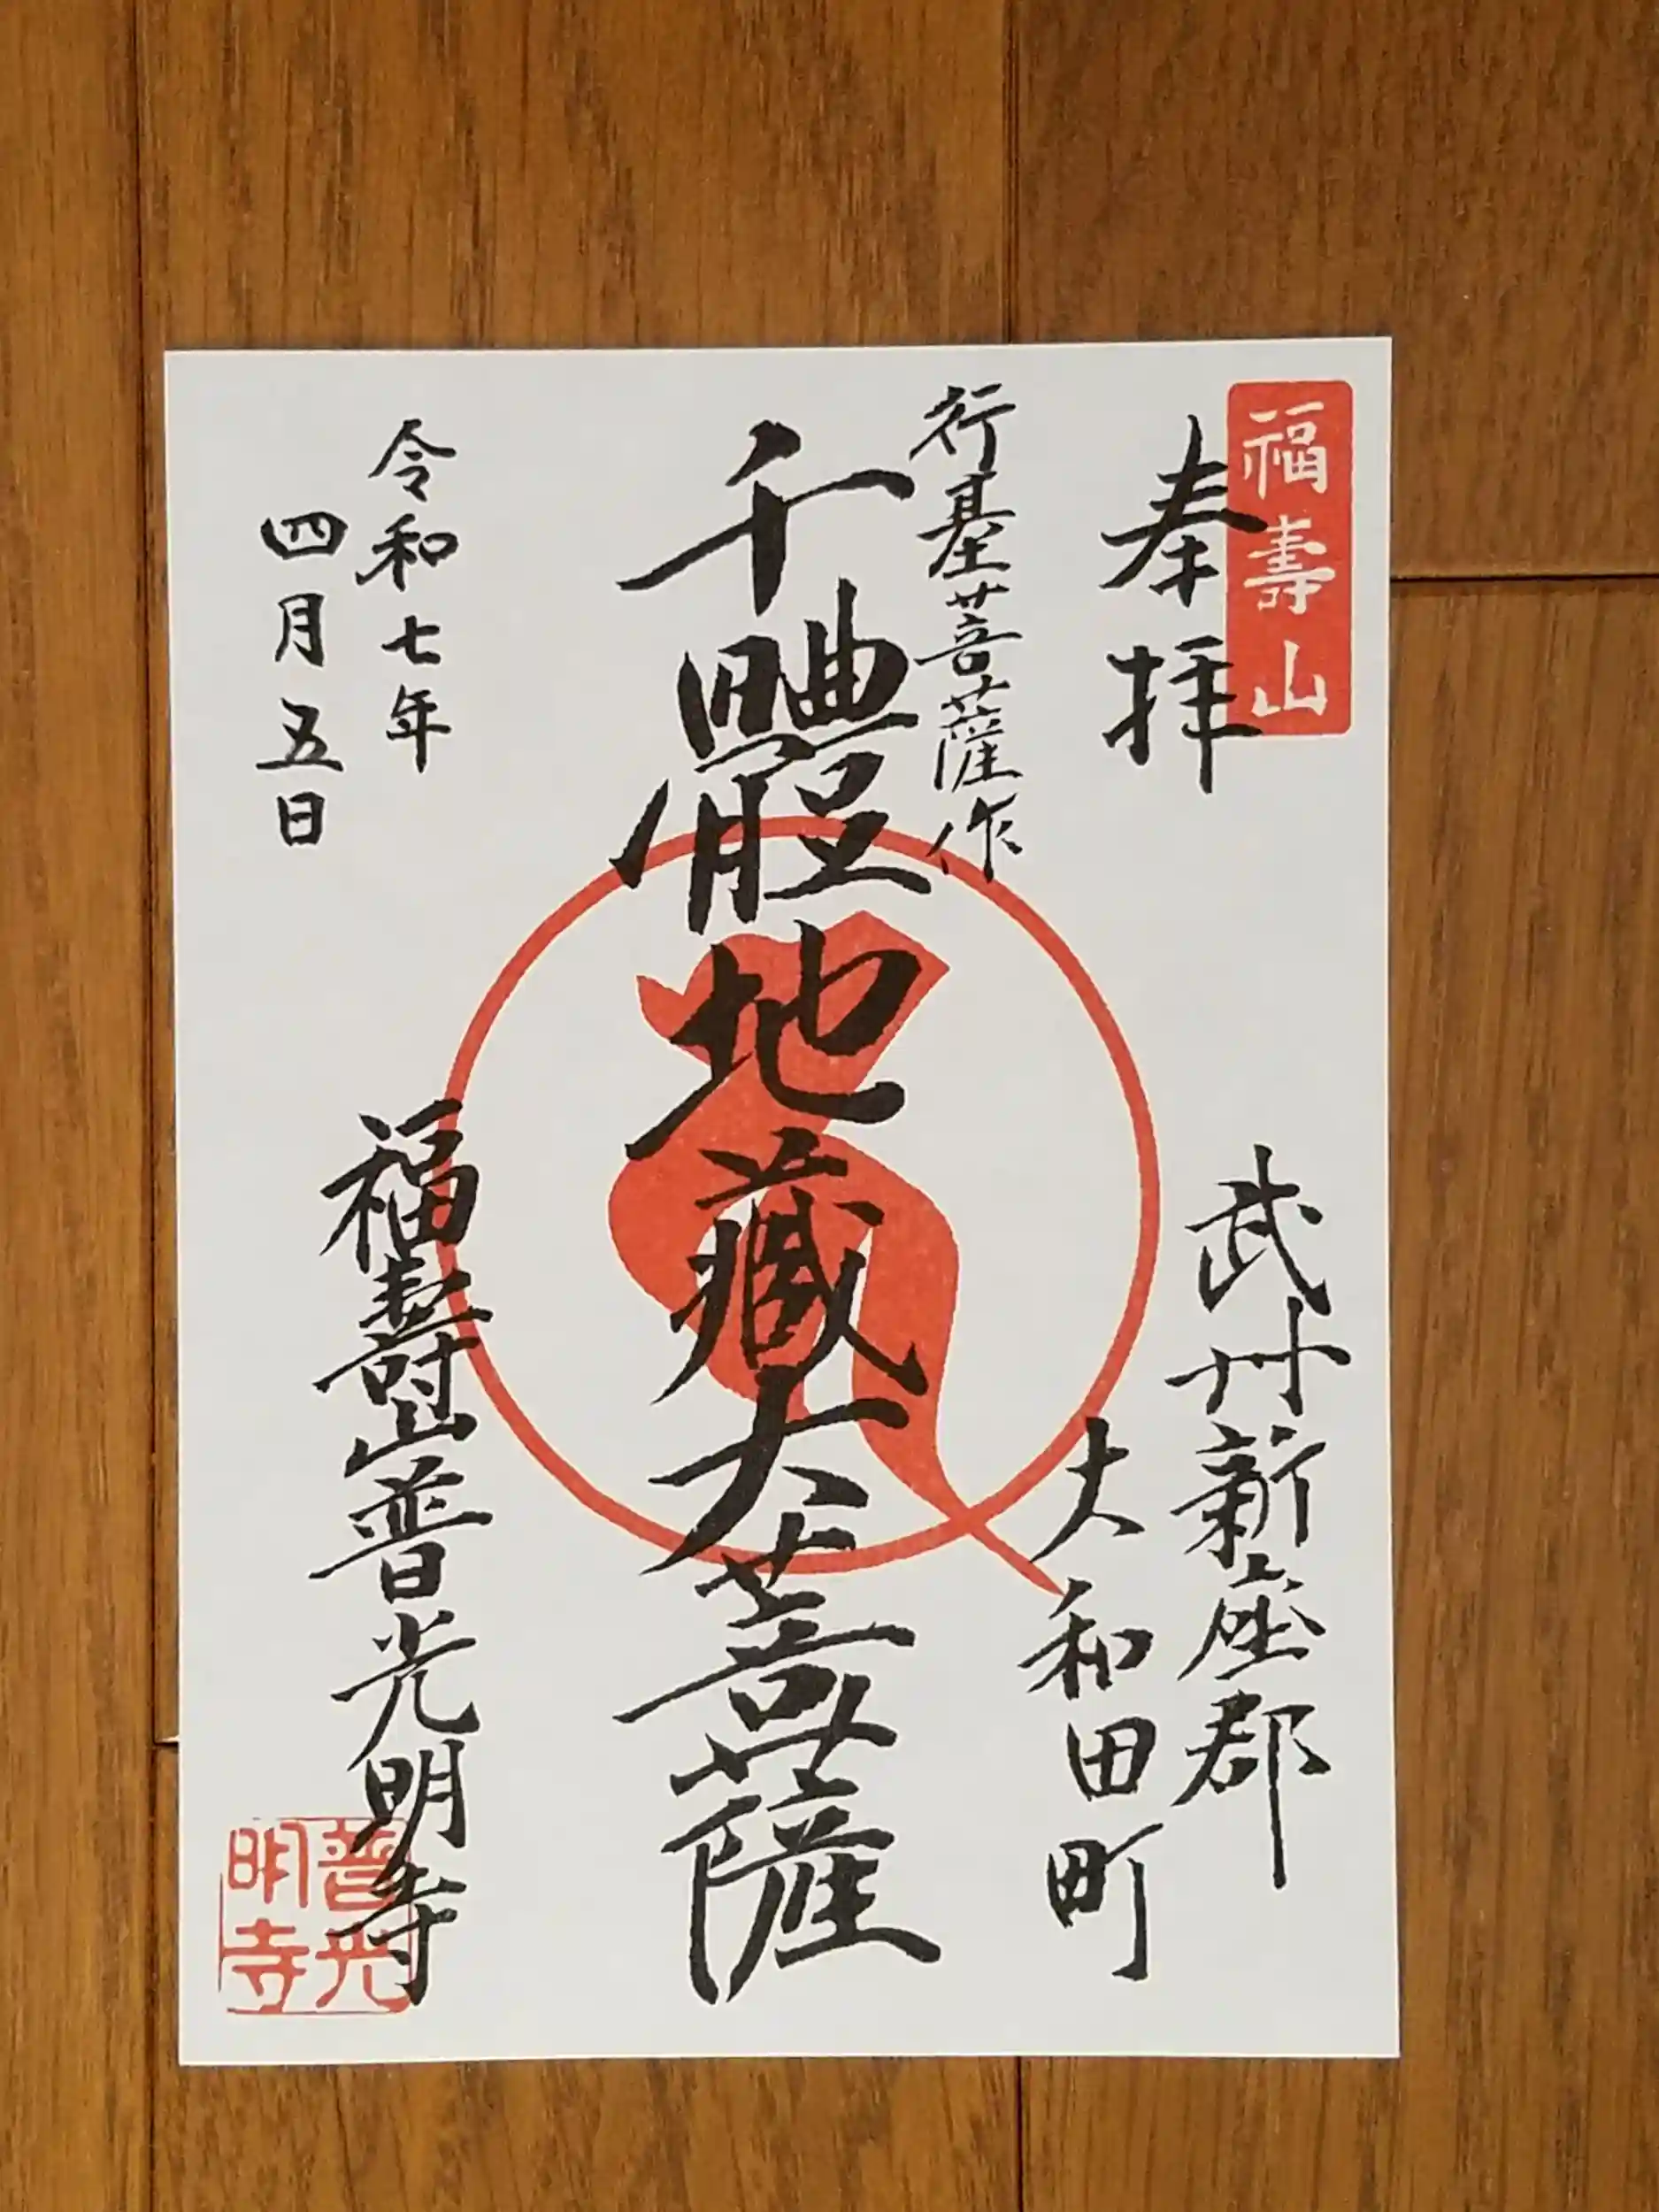 福壽山
奉拝
武州新座郡
大和田町
行基菩薩作
千體地藏大菩薩
令和七年
四月五日
福壽山普光明寺
普光明寺